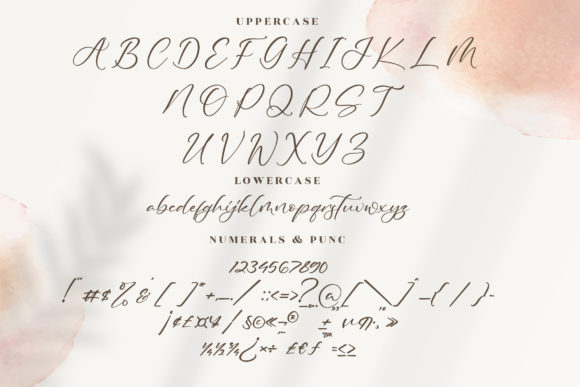 UPPERCASE
ABCDEFGHIJKLM
NOPQRST
UVWXYZ
LOWERCASE
abcdefghijklmnopqrstuvwxyz
NUMERALS & PUNC
1234567890
!"#$%&'[]*+,-./:;<=>?@[\]^_{/}~
¡¢£¤¥/§©«¬®±µ¶·¸»
¼½¾¿×÷£€ƒ=≤≥